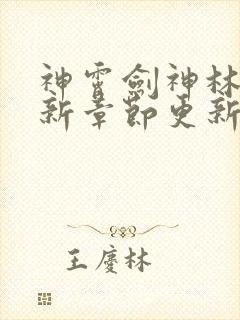 神霄劍神林
新章節更新
王慶林